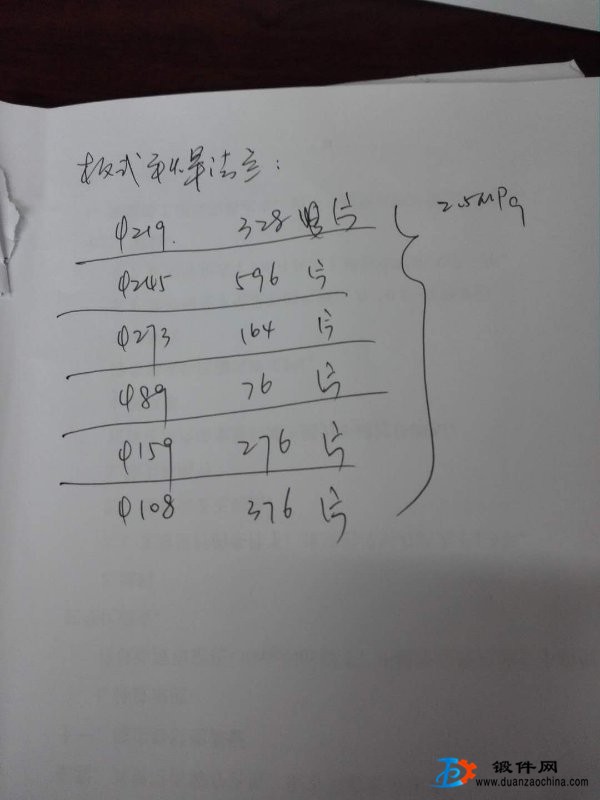 板式平焊法兰:
φ219. 328 片
φ245 596 片
φ273 164 片
φ89 76 片
φ159 276 片
φ108 376 片
2.5MPa
锻件网
www.duanzaochina.com